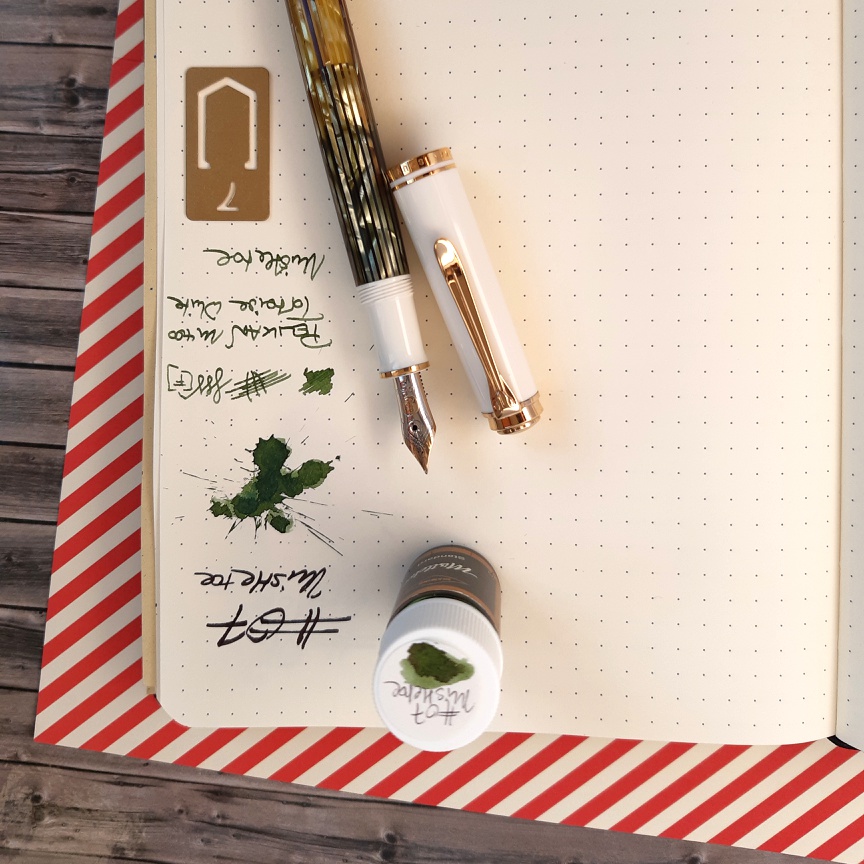 #07
Mistletoe
#07
Mistletoe
Standard
[F]
PELIKAN M400
Tortoise White
Mistletoe